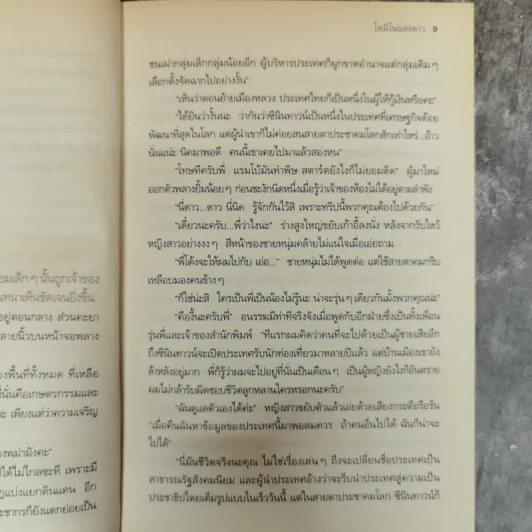 ยมเล็ก ๆ นั้นถูกเจ้าของ
ทนาเห็นชัดเจนยิ่งขึ้น
อยู่ตอนกลาง ส่วนคะยา
ลายนิ้วบนหน้าจอพลาง
งพื้นที่ทั้งหมด ที่เหลือ
ที่นั่นคือเกษตรกรรมและ
ะ เพียงแต่ว่าความเจริญ
องพม่ามังคะ"
ได้ไม่ไกลซะที เพราะมี
ฎแบ่งแยกดินแดน อีก
ะชากรก็ยังแตกย่อยเป็น
โดมิโนแสงดาว 9
ชนเผ่ากลุ่มเล็กกลุ่มน้อยอีก ผู้บริหารประเทศก็ผูกขาดอำนาจแต่กลุ่มเดิม ๆ
เลือกตั้งจัดฉากไปอย่างงั้น"
"เห็นว่าตอนย้ายเมืองหลวง ประเทศไทยก็เป็นหนึ่งในผู้ให้กู้เงินหรือคะ"
"ได้ยินว่างั้นนะ ว่ากันว่าซีนินทาวน์เป็นหนึ่งในประเทศที่เศรษฐกิจด้อย
พัฒนาที่สุดในโลก แต่ผู้นำเขาก็ไม่ค่อยสนสายตาประชาคมโลกสักเท่าไหร่ ..อ้าว
นั่นแน่ะ นิคมาพอดี คนนี้เขาเคยไปมาแล้วสองหน"
"โทษทีครับพี่ แรมโบ้มันท่าพิษ สตาร์ตยังไงก็ไม่ยอมติด" ผู้มาใหม่
ออกตัวพลางยิ้มน้อย ๆ ก่อนชะงักนิดหนึ่งเมื่อรู้ว่าเจ้าของห้องไม่ได้อยู่ตามลำพัง
"นี่ดาว...ดาว นี่นิค รู้จักกันไว้สิ เพราะทริปนี้พวกคุณต้องไปด้วยกัน"
"เดี๋ยวนะครับ...พี่ว่าไงนะ" ร่างสูงใหญ่ขยับเก้าอี้ลงนั่ง หลังจากรับไหว้
หญิงสาวอย่างงง ๆ สีหน้าของชายหนุ่มคล้ายไม่แน่ใจเมื่อเอ่ยถาม
"พี่โต้งจะให้ผมไปกับ เอ่อ..." ชายหนุ่มไม่ได้พูดต่อ แต่ใช้สายตาคมกริบ
เหลือบมองคนข้าง ๆ
"ก็ใช่น่ะสิ ใครเป็นพี่เป็นน้องไม่รู้นะ น่าจะรุ่น ๆ เดียวกันมั้งพวกคุณน่ะ"
"คืองี้นะครับพี่" อนรรฆมีท่าทีจริงจังเมื่อพูดกับอีกฝ่ายซึ่งเป็นทั้งเพื่อน
รุ่นพี่และเจ้าของสำนักพิมพ์ "ทีแรกผมคิดว่าคนที่จะไปด้วยเป็นผู้ชายเสียอีก
ถึงซีนินทาวน์จะเปิดประเทศรับนักท่องเที่ยวมาหลายปีแล้ว แต่บ้านเมืองเขายัง
ล้าหลังอยู่มาก พี่ก็รู้ว่าผมจะไปอยู่ที่นั่นเป็นเดือน ๆ เป็นผู้หญิงยังไงก็อันตราย
ผมไม่กล้ารับผิดชอบชีวิตลูกหลานใครหรอกนะครับ"
"ฉันดูแลตัวเองได้ค่ะ" หญิงสาวขยับตัวแล้วเอ่ยด้วยเสียงกระตือรือร้น
"เมื่อคืนฉันหาข้อมูลของประเทศนี้มาพอสมควร ถ้าคนอื่นไปได้ ฉันก็น่าจะ
ไปได้"
"นี่มันชีวิตจริงนะคุณ ไม่ใช่เรื่องเล่น ๆ ถึงจะเปลี่ยนชื่อประเทศเป็น
สาธารณรัฐสังคมนิยม และผู้นำประเทศอ้างว่าจะรีบนำประเทศเข้าสู่ความเป็น
ประชาธิปไตยเต็มรูปแบบในเร็ววันนี้ แต่ในสายตาประชาคมโลก ซีนินทาวน์ก็